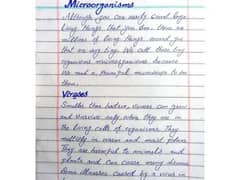 Microorganisms
Although you can easily count large
living things that you see. There are
millions of living things around you
that are very tiny. We call these tiny
organisms microorganisms because
We need a powerful microscope to see
them.
Viruses
Smaller than bacteria, viruses can grow
and survive only when they are in
the living cells of organisms. They
multiply in warm and moist places
They are harmful to animals and
plants and can cause many disease
Some illnesses caused by a virus in